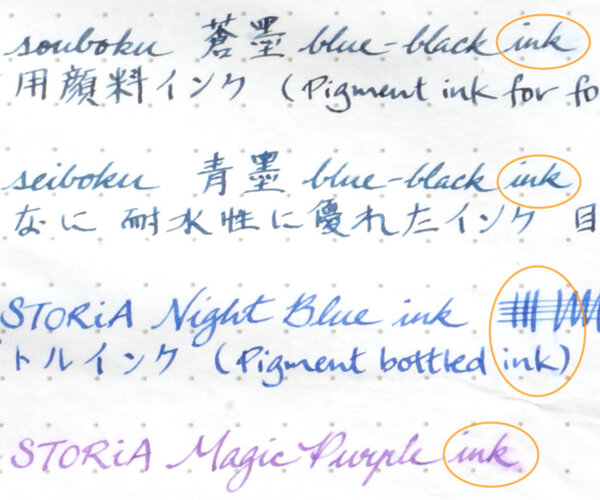 souboku 蒼墨 blue-black ink
用顔料インク (Pigment ink for fo
seiboku 青墨 blue-black ink
なに 耐水性に優れたインク 目
STORiA Night Blue ink
トルインク (Pigment bottled ink)
STORiA Magic Purple ink